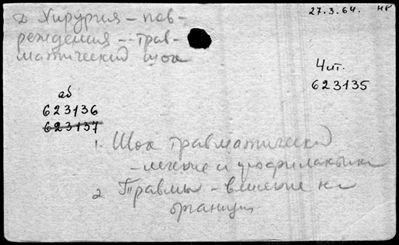 Д Хирургия – пов-
реждения – трав-
матический шок
27.3.64. НР
Чит.
623135
аб
623136
623137
1. Шок травматический
– лечение и профилактика
2 Травмы – влияние на
организм